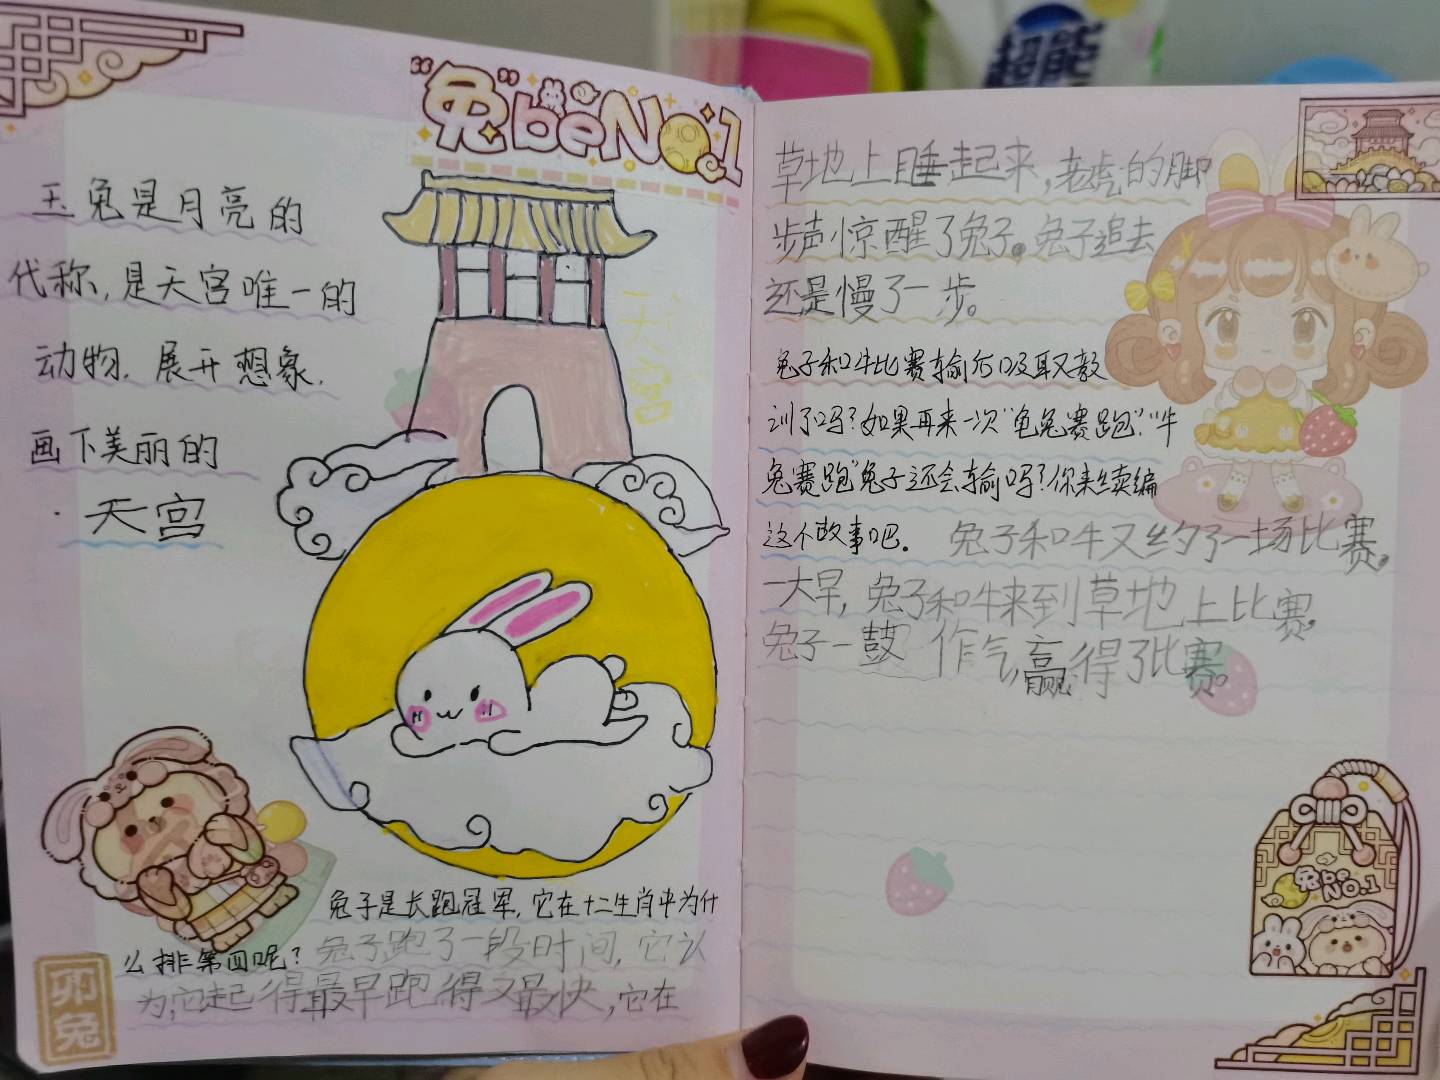 "兔"beNO.1
玉兔是月亮的
代称,是天宫唯一的
动物.展开想象.
画下美丽的
·天宫
天宫
兔子是长跑冠军,它在十二生肖中为什
么排第四呢?兔子跑了一段时间,它认
为,它起得最早跑得又最快,它在
卯兔
超能
草地上睡起来,老虎的脚
步声惊醒了兔子。兔子追去
还是慢了一步。
兔子和牛比赛输后吸取教
训了吗?如果再来一次"龟兔赛跑"."牛
兔赛跑"兔子还会输吗?你来续编
这个故事吧.兔子和牛又约了一场比赛。
一大早,兔子和牛来到草地上比赛,
兔子一鼓作气,赢得了比赛。
兔be
NO.1